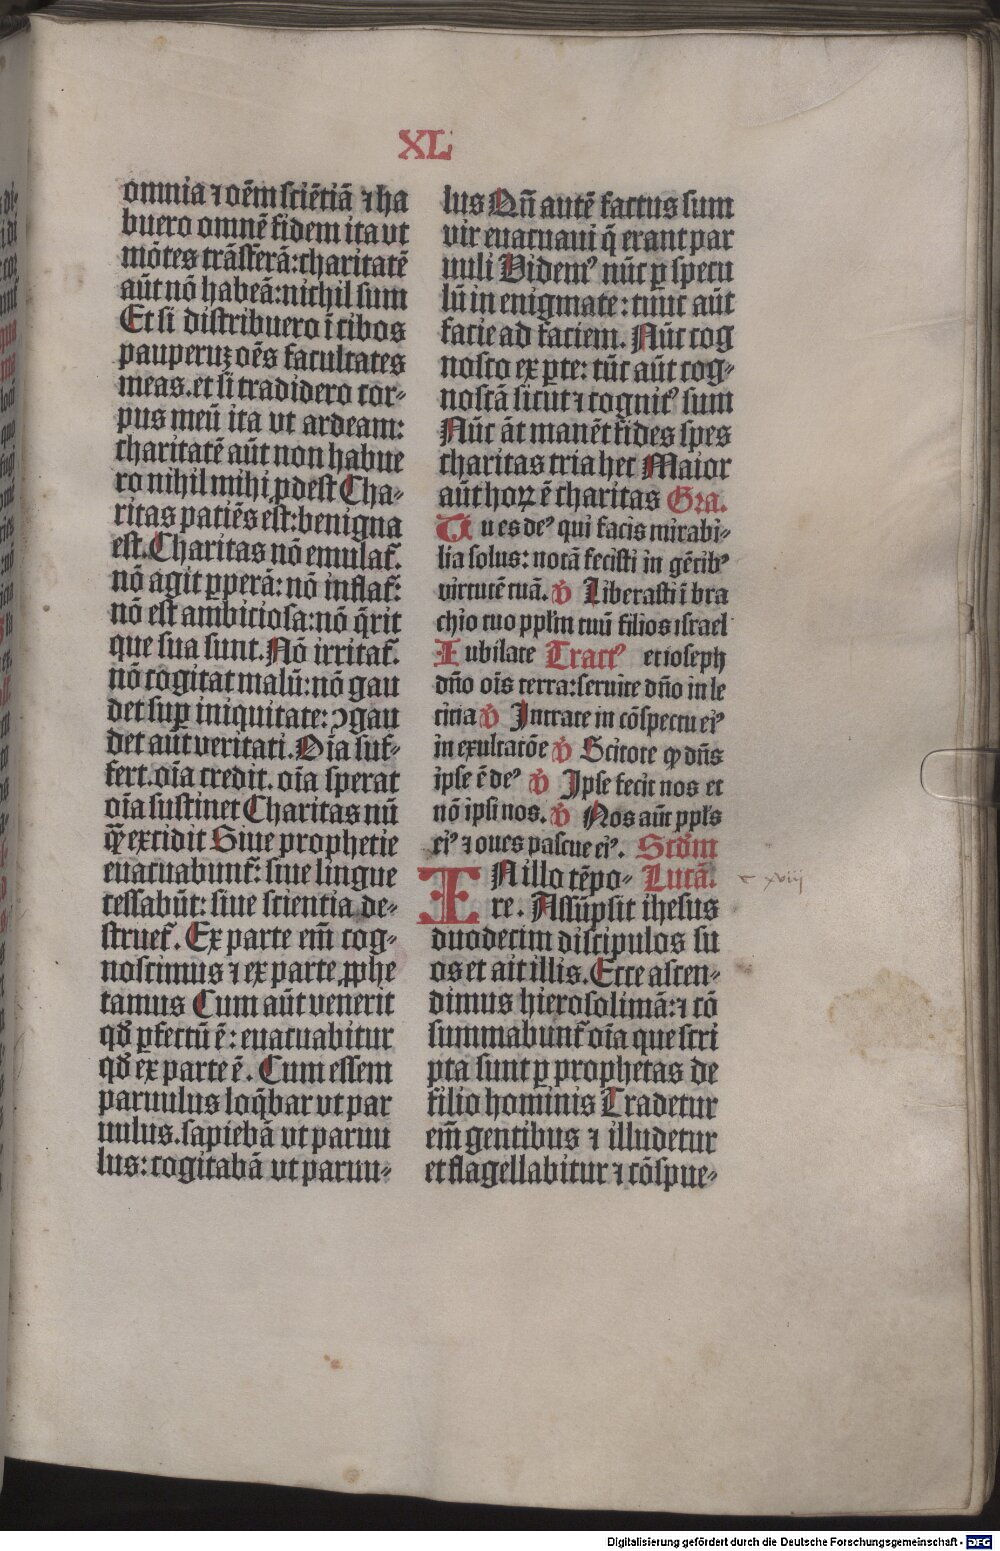 XL
omnia ⁊ oēm sciētiā ⁊ ha
buero omnē fidem ita vt
mōtes trāsferā: charitatē
aūt nō habeā: nichil sum
Et si distribuero ī cibos
pauperuꝫ oēs facultates
meas. et si tradidero cor⸗
pus meū ita vt ardeam:
charitatē aūt non habue
ro nihil mihi ꝓdest Cha⸗
ritas patiēs est: benigna
est. Charitas nō emulat̄.
nō agit ꝑperā: nō inflat̄:
nō est ambiciosa: nō q̄rit
que sua sunt. Nō irritat̄.
nō cogitat malū: nō gau
det suꝑ iniquitate: ↄgau
det aūt veritati. Oīa suf⸗
fert. oīa credit. oīa sperat
oīa sustinet Charitas nū
qͣꝫ excidit Siue prophetie
euacuabunt̄: siue lingue
cessabūt: siue scientia de⸗
struet̄. Ex parte em̄ cog⸗
noscimus ⁊ ex parte ꝓphe
tamus Cum aūt venerit
qđ ꝑfectū ē: euacuabitur
qđ ex parte ē. Cum essem
paruulus loq̄bar vt par
uulus. sapiebā vt paruu
lus: cogitabā vt paruu⸗
lus Qn̄ autē factus sum
vir euacuaui q̄ erant par
uuli Videmꝰ nūc ꝑ specu
lū in enigmate: tunc aūt
facie ad faciem. Nūc cog
nosco ex ꝑte: tūc aūt cog⸗
noscā sicut ⁊ cognitꝰ sum
Nūc āt manēt fides spes
charitas tria hec Maior
aūt hoꝝ ē charitas Gra.
Tu es deꝰ qui facis mirabi⸗
lia solus: notā fecisti in gētibꝰ
virtutē tuā. ℣ Liberasti ī bra
chio tuo pplm̄ tuū filios israel
Iubilate Tractꝰ et ioseph
dn̄o oīs terra: seruite dn̄o in le
ticia ℣ Intrate in cōspectu eiꝰ
in exultatōe ℣ Scitote ꝙ dn̄s
ipse ē deꝰ ℣ Ipse fecit nos et
nō ipsi nos. ℣ Nos aūt ppl̄s
eiꝰ ⁊ oues pascue eiꝰ. Scđm
IN illo tēpo⸗ Lucā. c xviij
re. Assūpsit ihesus
duodecim discipulos su
os et ait illis. Ecce ascen⸗
dimus hierosolimā: ⁊ cō
summabunt̄ oīa que scri
pta sunt ꝑ prophetas de
filio hominis Tradetur
em̄ gentibus ⁊ illudetur
et flagellabitur ⁊ cōspue⸗
Digitalisierung gefördert durch die Deutsche Forschungsgemeinschaft - DFG